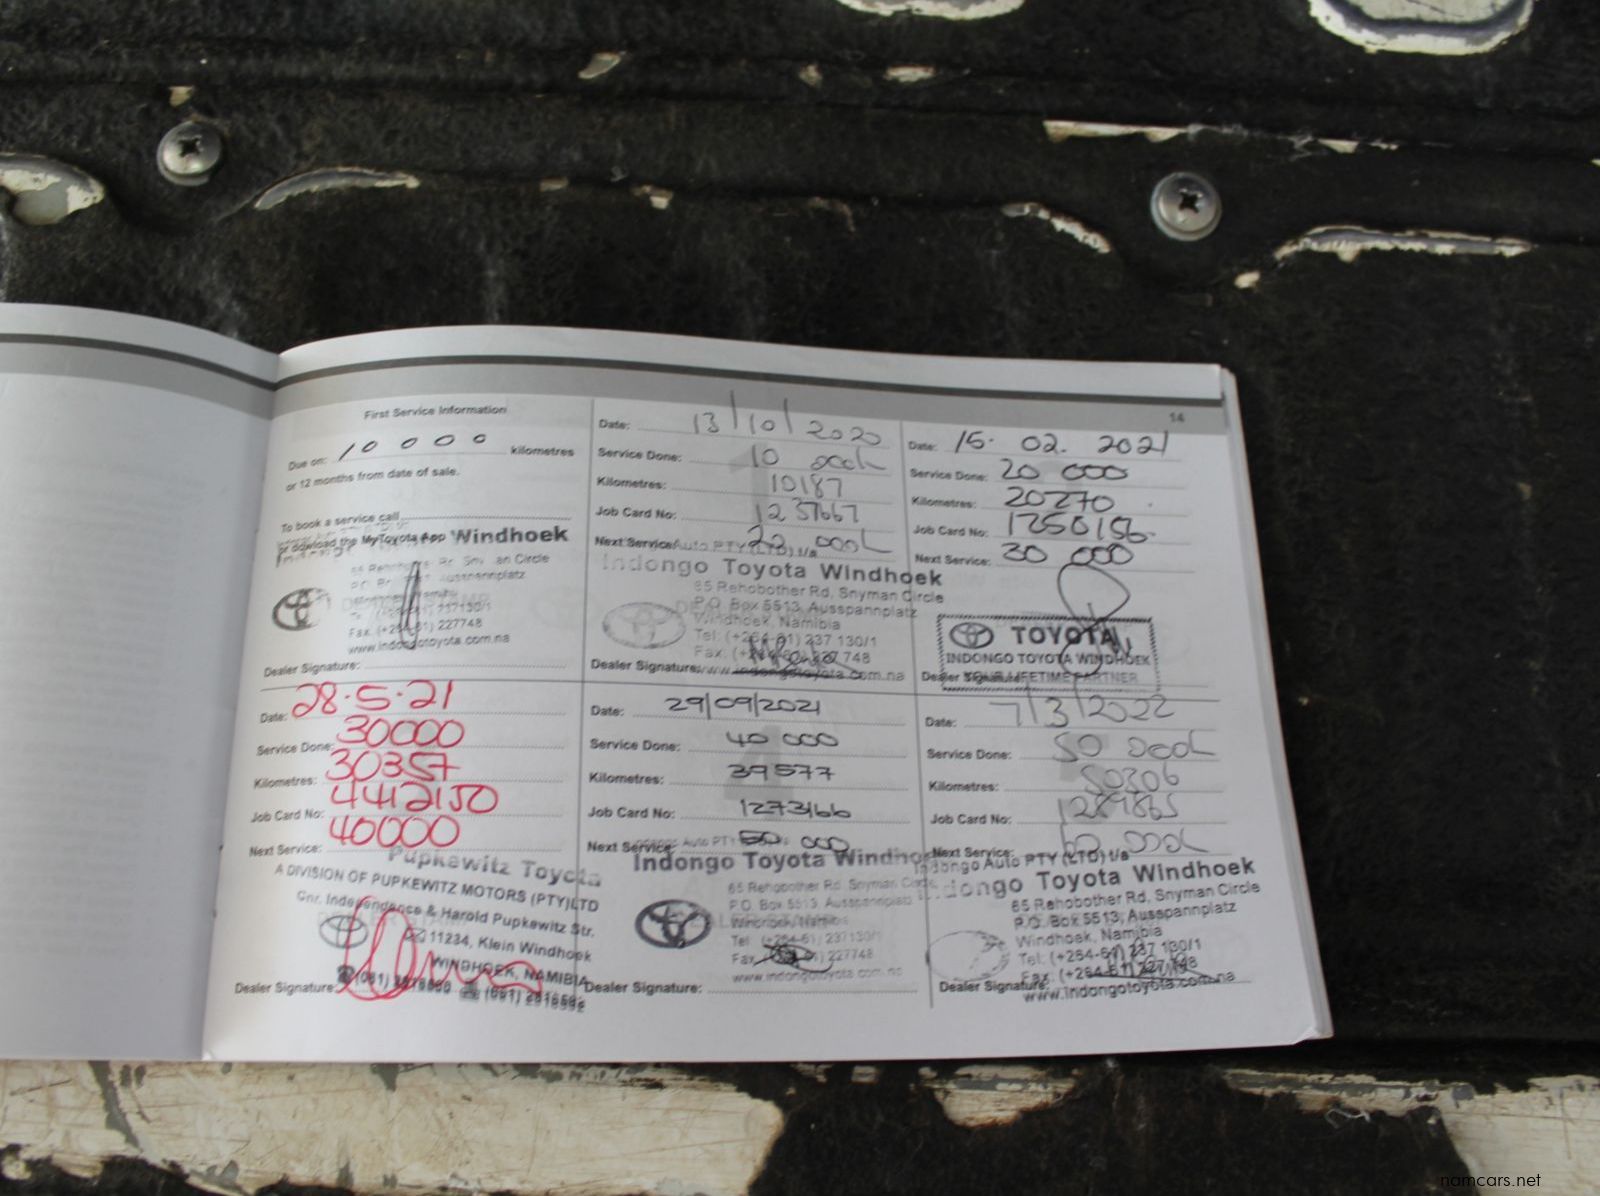 14
First Service Information
Due on: 10 000 kilometres
or 12 months from date of sale.
To book a service call
or download the MyToyota App Windhoek
Ausspannplatz
Fax. (+264-61) 227748
www.indongotoyota.com.na
Dealer Signature:
Date: 13/10/2020
Service Done: 10 000k
Kilometres: 10187
Job Card No: 1237667
Next Service: 20 000k
Auto PTY(LTD) t/a
Indongo Toyota Windhoek
65 Rehobother Rd, Snyman Circle
P.O. Box 5513, Ausspannplatz
Windhoek, Namibia
Tel: (+264-61) 237 130/1
Fax: (+264-61) 227 748
www.indongotoyota.com.na
Dealer Signature:
Date: 15. 02. 2021
Service Done: 20 000
Kilometres: 20270
Job Card No: 1250156
Next Service: 30 000
TOYOTA
INDONGO TOYOTA WINDHOEK
YOUR LIFETIME PARTNER
Dealer Signature:
Date: 28.5.21
Service Done: 30000
Kilometres: 30357
Job Card No: 4412150
Next Service: 40000
Pupkewitz Toyota
A DIVISION OF PUPKEWITZ MOTORS (PTY)LTD
Cnr. Independence & Harold Pupkewitz Str.
11234, Klein Windhoek
WINDHOEK, NAMIBIA
Dealer Signature:
Date: 29/09/2021
Service Done: 40 000
Kilometres: 39577
Job Card No: 1273166
Next Service: 50 000
Indongo Toyota Windhoek
65 Rehobother Rd, Snyman Circle
P.O. Box 5513, Ausspannplatz
Windhoek, Namibia
Tel: (+264-61) 237130/1
Fax: (+264-61) 227748
www.indongotoyota.com.na
Dealer Signature:
Date: 7/3/2022
Service Done: 50 000k
Kilometres: 50306
Job Card No: 1289865
Next Service: 60 000k
Indongo Auto PTY (LTD) t/a
Indongo Toyota Windhoek
65 Rehobother Rd, Snyman Circle
P.O. Box 5513, Ausspannplatz
Windhoek, Namibia
Tel: (+264-61) 237 130/1
Fax: (+264-61) 227 748
www.indongotoyota.com.na
Dealer Signature:
namcars.net